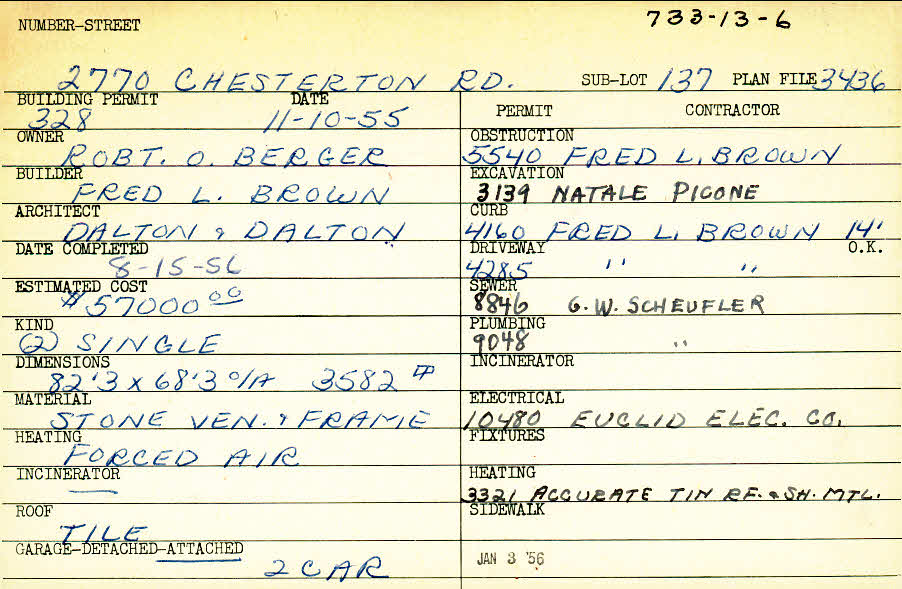 NUMBER-STREET 733-13-6
2770 CHESTERTON RD. SUB-LOT 137 PLAN FILE 3436
BUILDING PERMIT DATE
328 11-10-55
OWNER
ROBT. O. BERGER
BUILDER
FRED L. BROWN
ARCHITECT
DALTON & DALTON
DATE COMPLETED
8-15-56
ESTIMATED COST
$57000 00
KIND
(2) SINGLE
DIMENSIONS
82'3 x 68'3 O/A 3582
MATERIAL
STONE VEN. & FRAME
HEATING
FORCED AIR
INCINERATOR
—
ROOF
TILE
GARAGE-DETACHED-ATTACHED
2 CAR
PERMIT CONTRACTOR
OBSTRUCTION
5540 FRED L. BROWN
EXCAVATION
3139 NATALE PICONE
CURB
4160 FRED L. BROWN 14'
DRIVEWAY O.K.
4285 " "
SEWER
8846 G.W. SCHEUFLER
PLUMBING
9048 "
INCINERATOR
ELECTRICAL
10480 EUCLID ELEC. CO.
FIXTURES
HEATING
3321 ACCURATE TIN RF. & SH. MTL.
SIDEWALK
JAN 3 '56